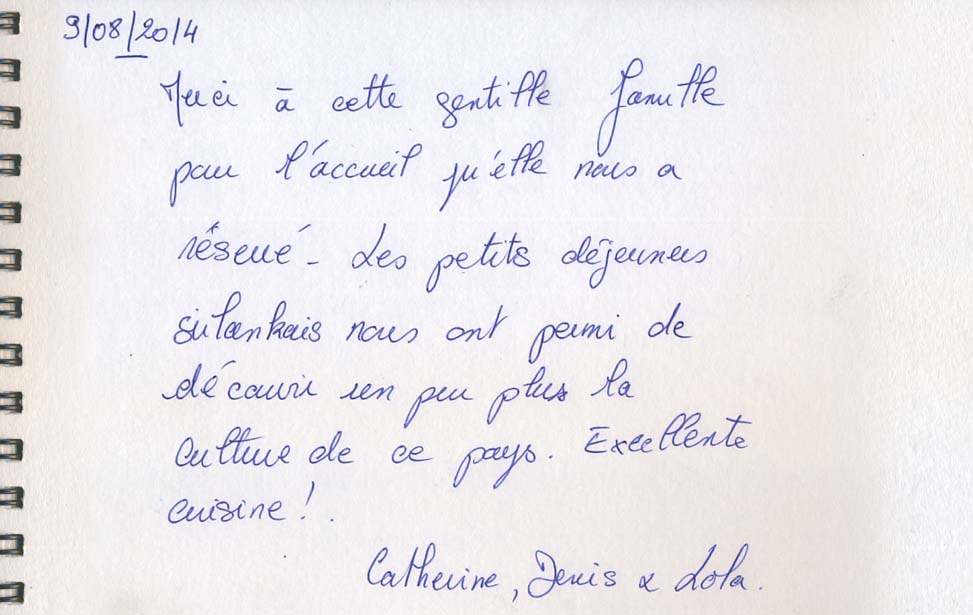 9/08/2014
Merci à cette gentille famille
pour l'accueil qu'elle nous a
réservé - Les petits déjeuners
srilankais nous ont permi de
découvrir un peu plus la
culture de ce pays. Excellente
cuisine !.
Catherine, Denis & Lola.